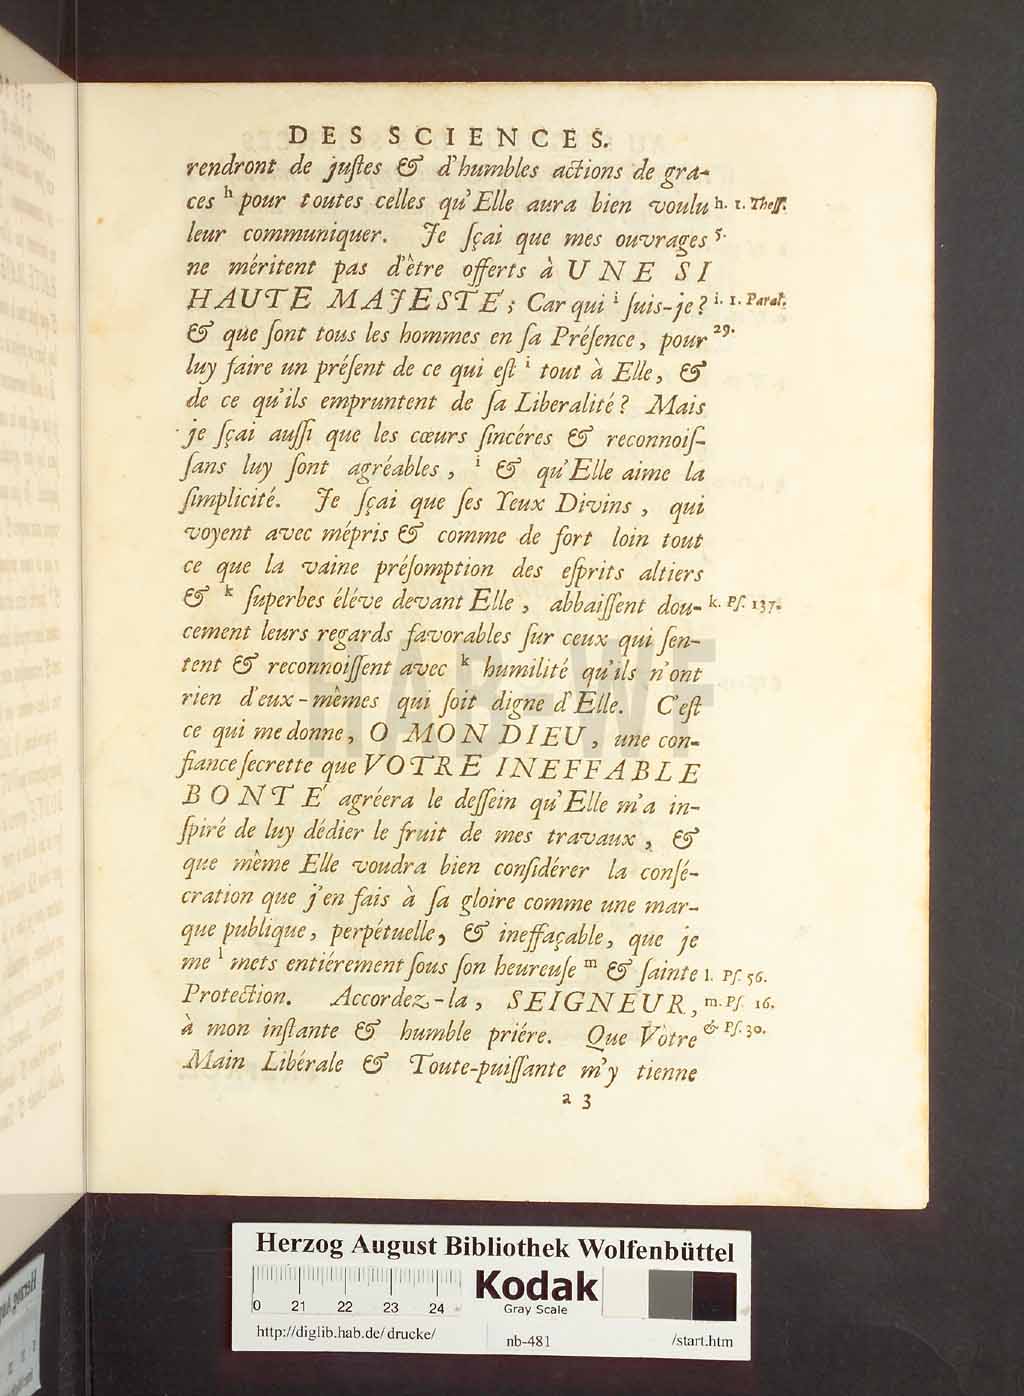 DES SCIENCES.
rendront de juſtes & d'humbles actions de gra-
ces h pour toutes celles qu'Elle aura bien voulu h. 1. Theſſ.
leur communiquer. Je ſçai que mes ouvrages 5.
ne méritent pas d'être offerts à UNE SI
HAUTE MAJESTÉ; Car qui i ſuis-je? i. 1. Paral.
& que ſont tous les hommes en ſa Préſence, pour 29.
luy faire un préſent de ce qui eſt i tout à Elle, &
de ce qu'ils empruntent de ſa Liberalité? Mais
je ſçai auſſi que les cœurs ſincéres & reconnoiſ-
ſans luy ſont agréables, i & qu'Elle aime la
ſimplicité. Je ſçai que ſes Yeux Divins, qui
voyent avec mépris & comme de fort loin tout
ce que la vaine préſomption des eſprits altiers
& k ſuperbes éléve devant Elle, abbaiſſent dou- k. Pſ. 137.
cement leurs regards favorables ſur ceux qui ſen-
tent & reconnoiſſent avec k humilité qu'ils n'ont
rien d'eux-mêmes qui ſoit digne d'Elle. C'eſt
ce qui me donne, O MON DIEU, une con-
fiance ſecrette que VOTRE INEFFABLE
BONTÉ agréera le deſſein qu'Elle m'a in-
ſpiré de luy dédier le fruit de mes travaux, &
que même Elle voudra bien conſidérer la conſé-
cration que j'en fais à ſa gloire comme une mar-
que publique, perpétuelle, & ineffaçable, que je
me l mets entiérement ſous ſon heureuſe m & ſainte l. Pſ. 56.
Protection. Accordez-la, SEIGNEUR, m. Pſ. 16.
à mon inſtante & humble priére. Que Vòtre & Pſ. 30.
Main Libérale & Toute-puiſſante m'y tienne
a 3
HAB-WF
Herzog August Bibliothek Wolfenbüttel
0 21 22 23 24
Kodak
Gray Scale
http://diglib.hab.de/drucke/ nb-481 /start.htm